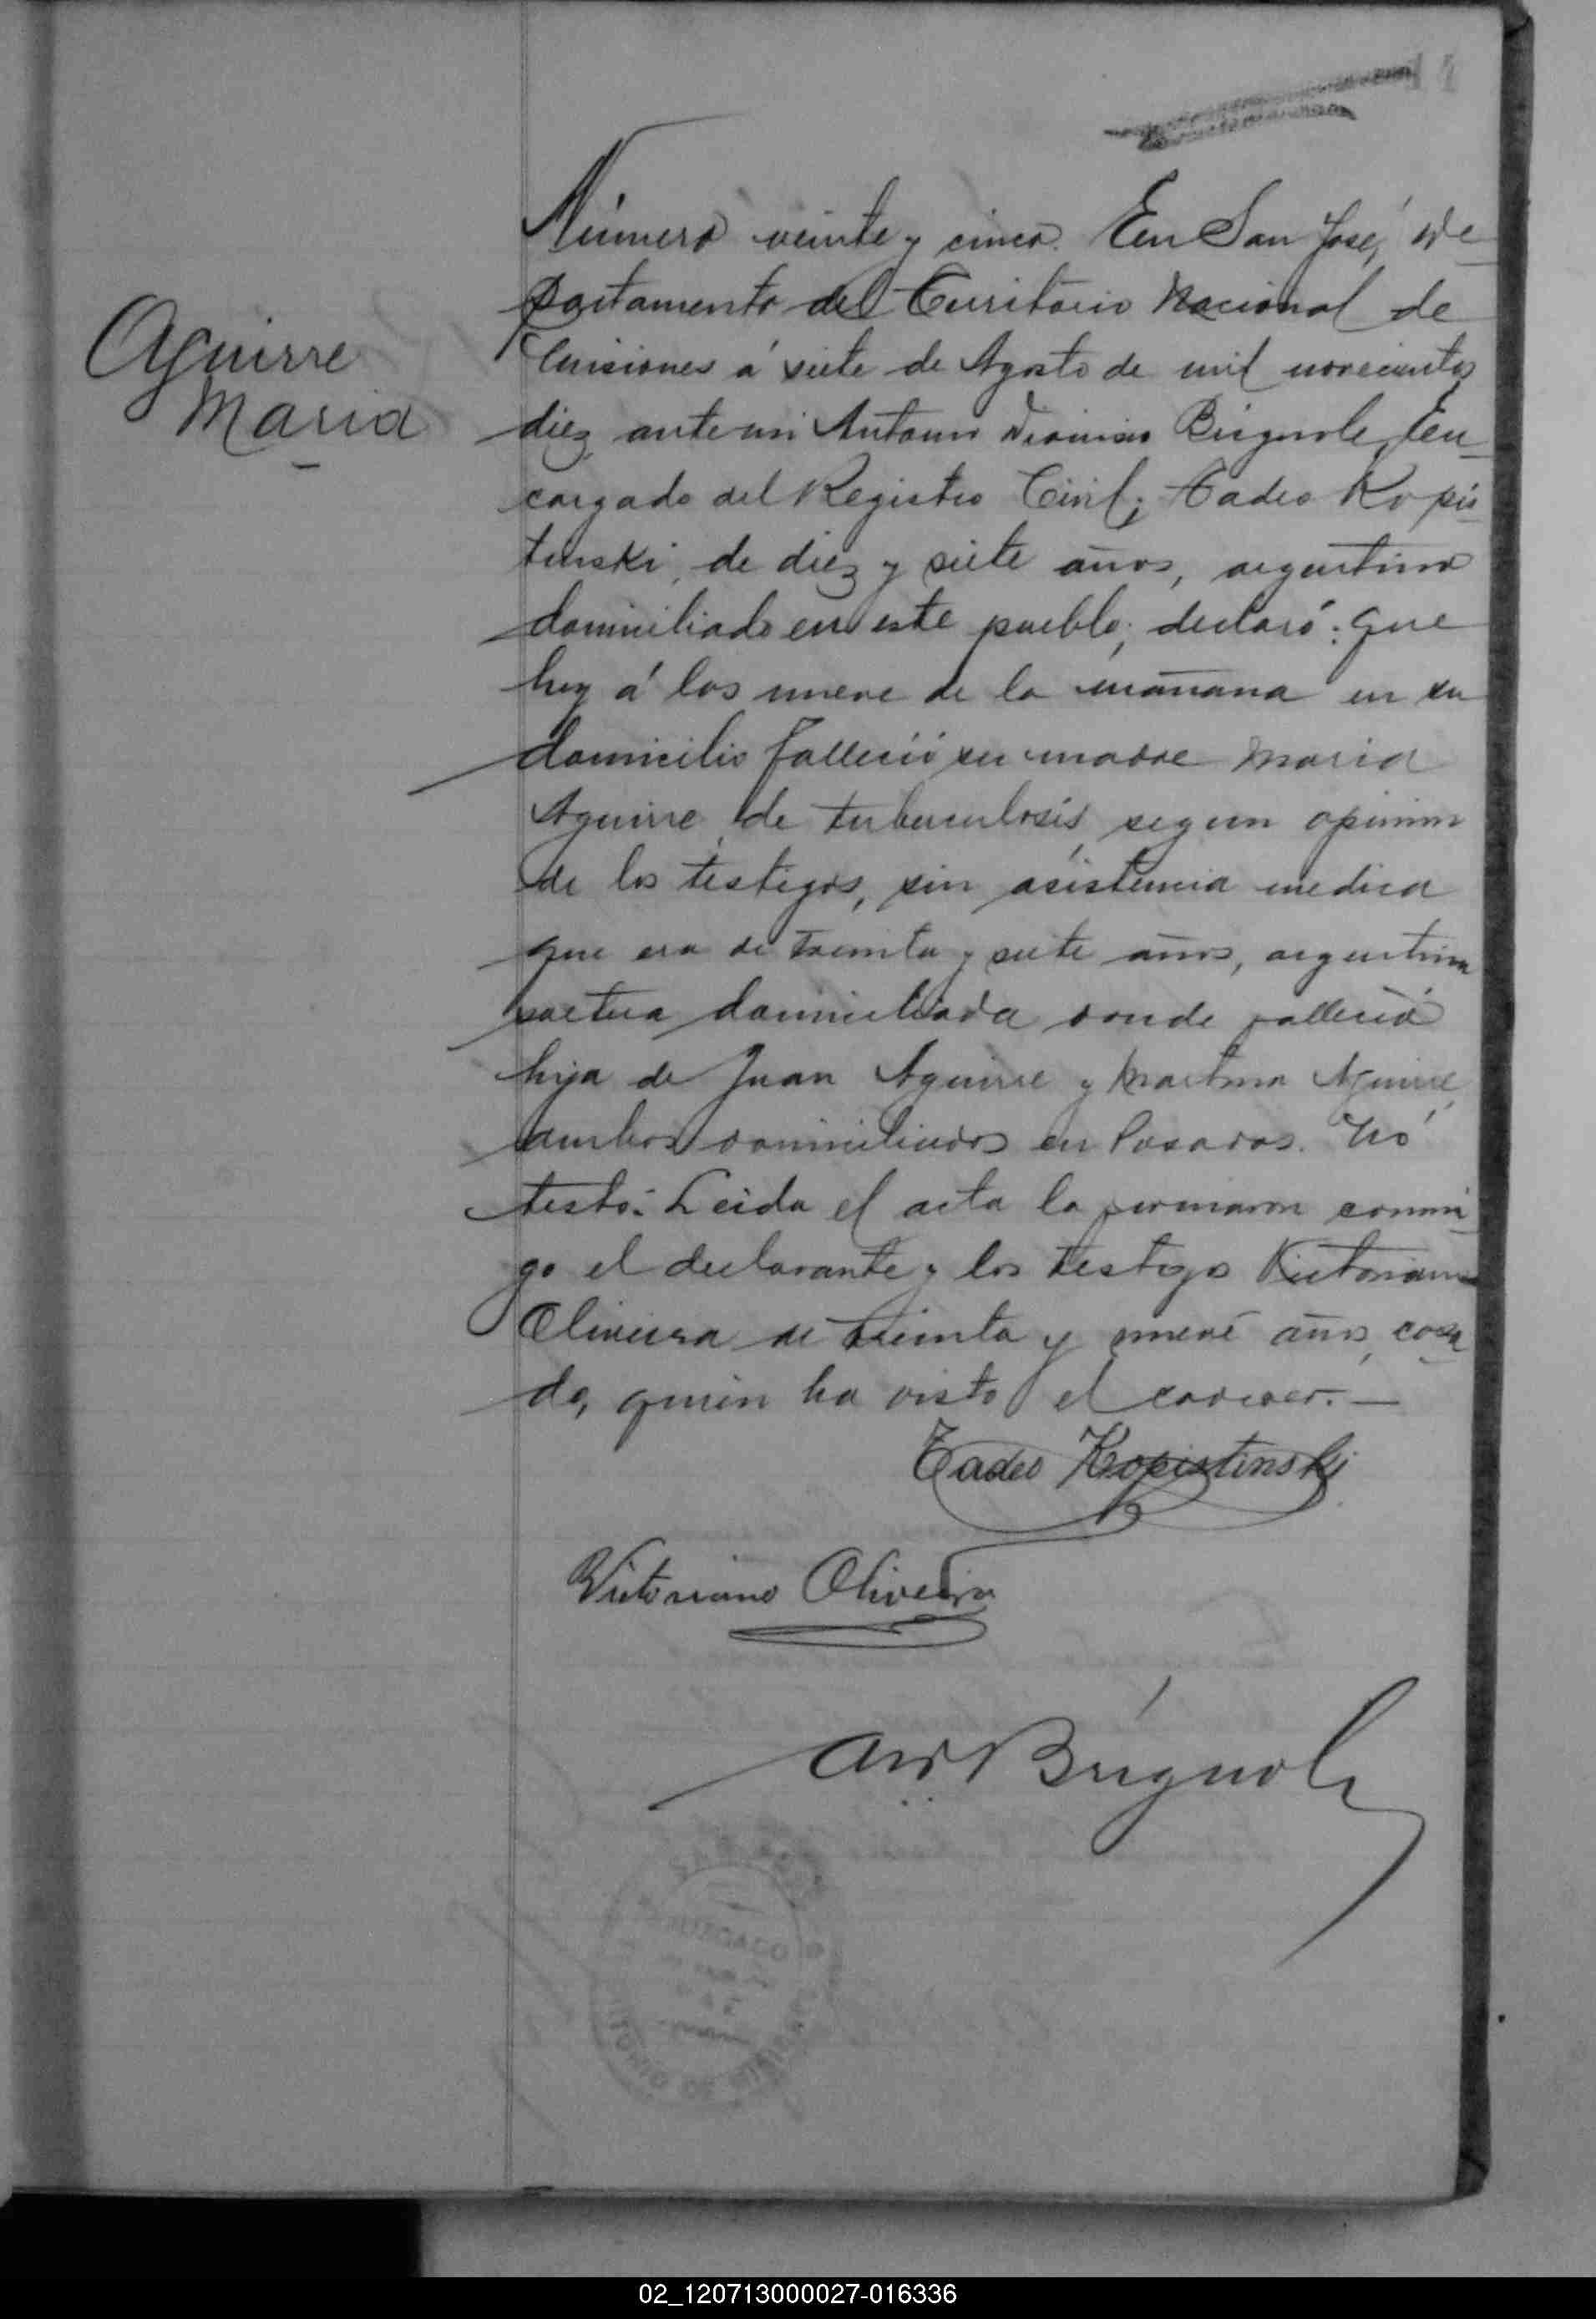 Aguirre
Maria
Número veinte y cinco. En San José, De-
partamento del Territorio Nacional de
Misiones á siete de Agosto de mil novecientos
diez, ante mi Antonio Dionisio Brignole, En-
cargado del Registro Civil; Tadeo Kopis-
tinski, de diez y siete años, argentino
domiciliado en este pueblo, declaró: Que
hoy á las nueve de la mañana en su
domicilio falleció su madre Maria
Aguirre, de tuberculosis, segun opinion
de los testigos, sin asistencia medica
que era de treinta y siete años, argentina
domiciliada donde falleció
hija de Juan Aguirre y Martina Aguirre,
ambos domiciliados en Posadas. No
testó. Leida el acta la firmaron conmi-
go el declarante y los testigo Victoriano
Oliveira de treinta y nueve años, casa-
do, quien ha visto el cadaver.—
Tadeo Kopistinski
Victoriano Oliveira
Brignole
02_120713000027-016336